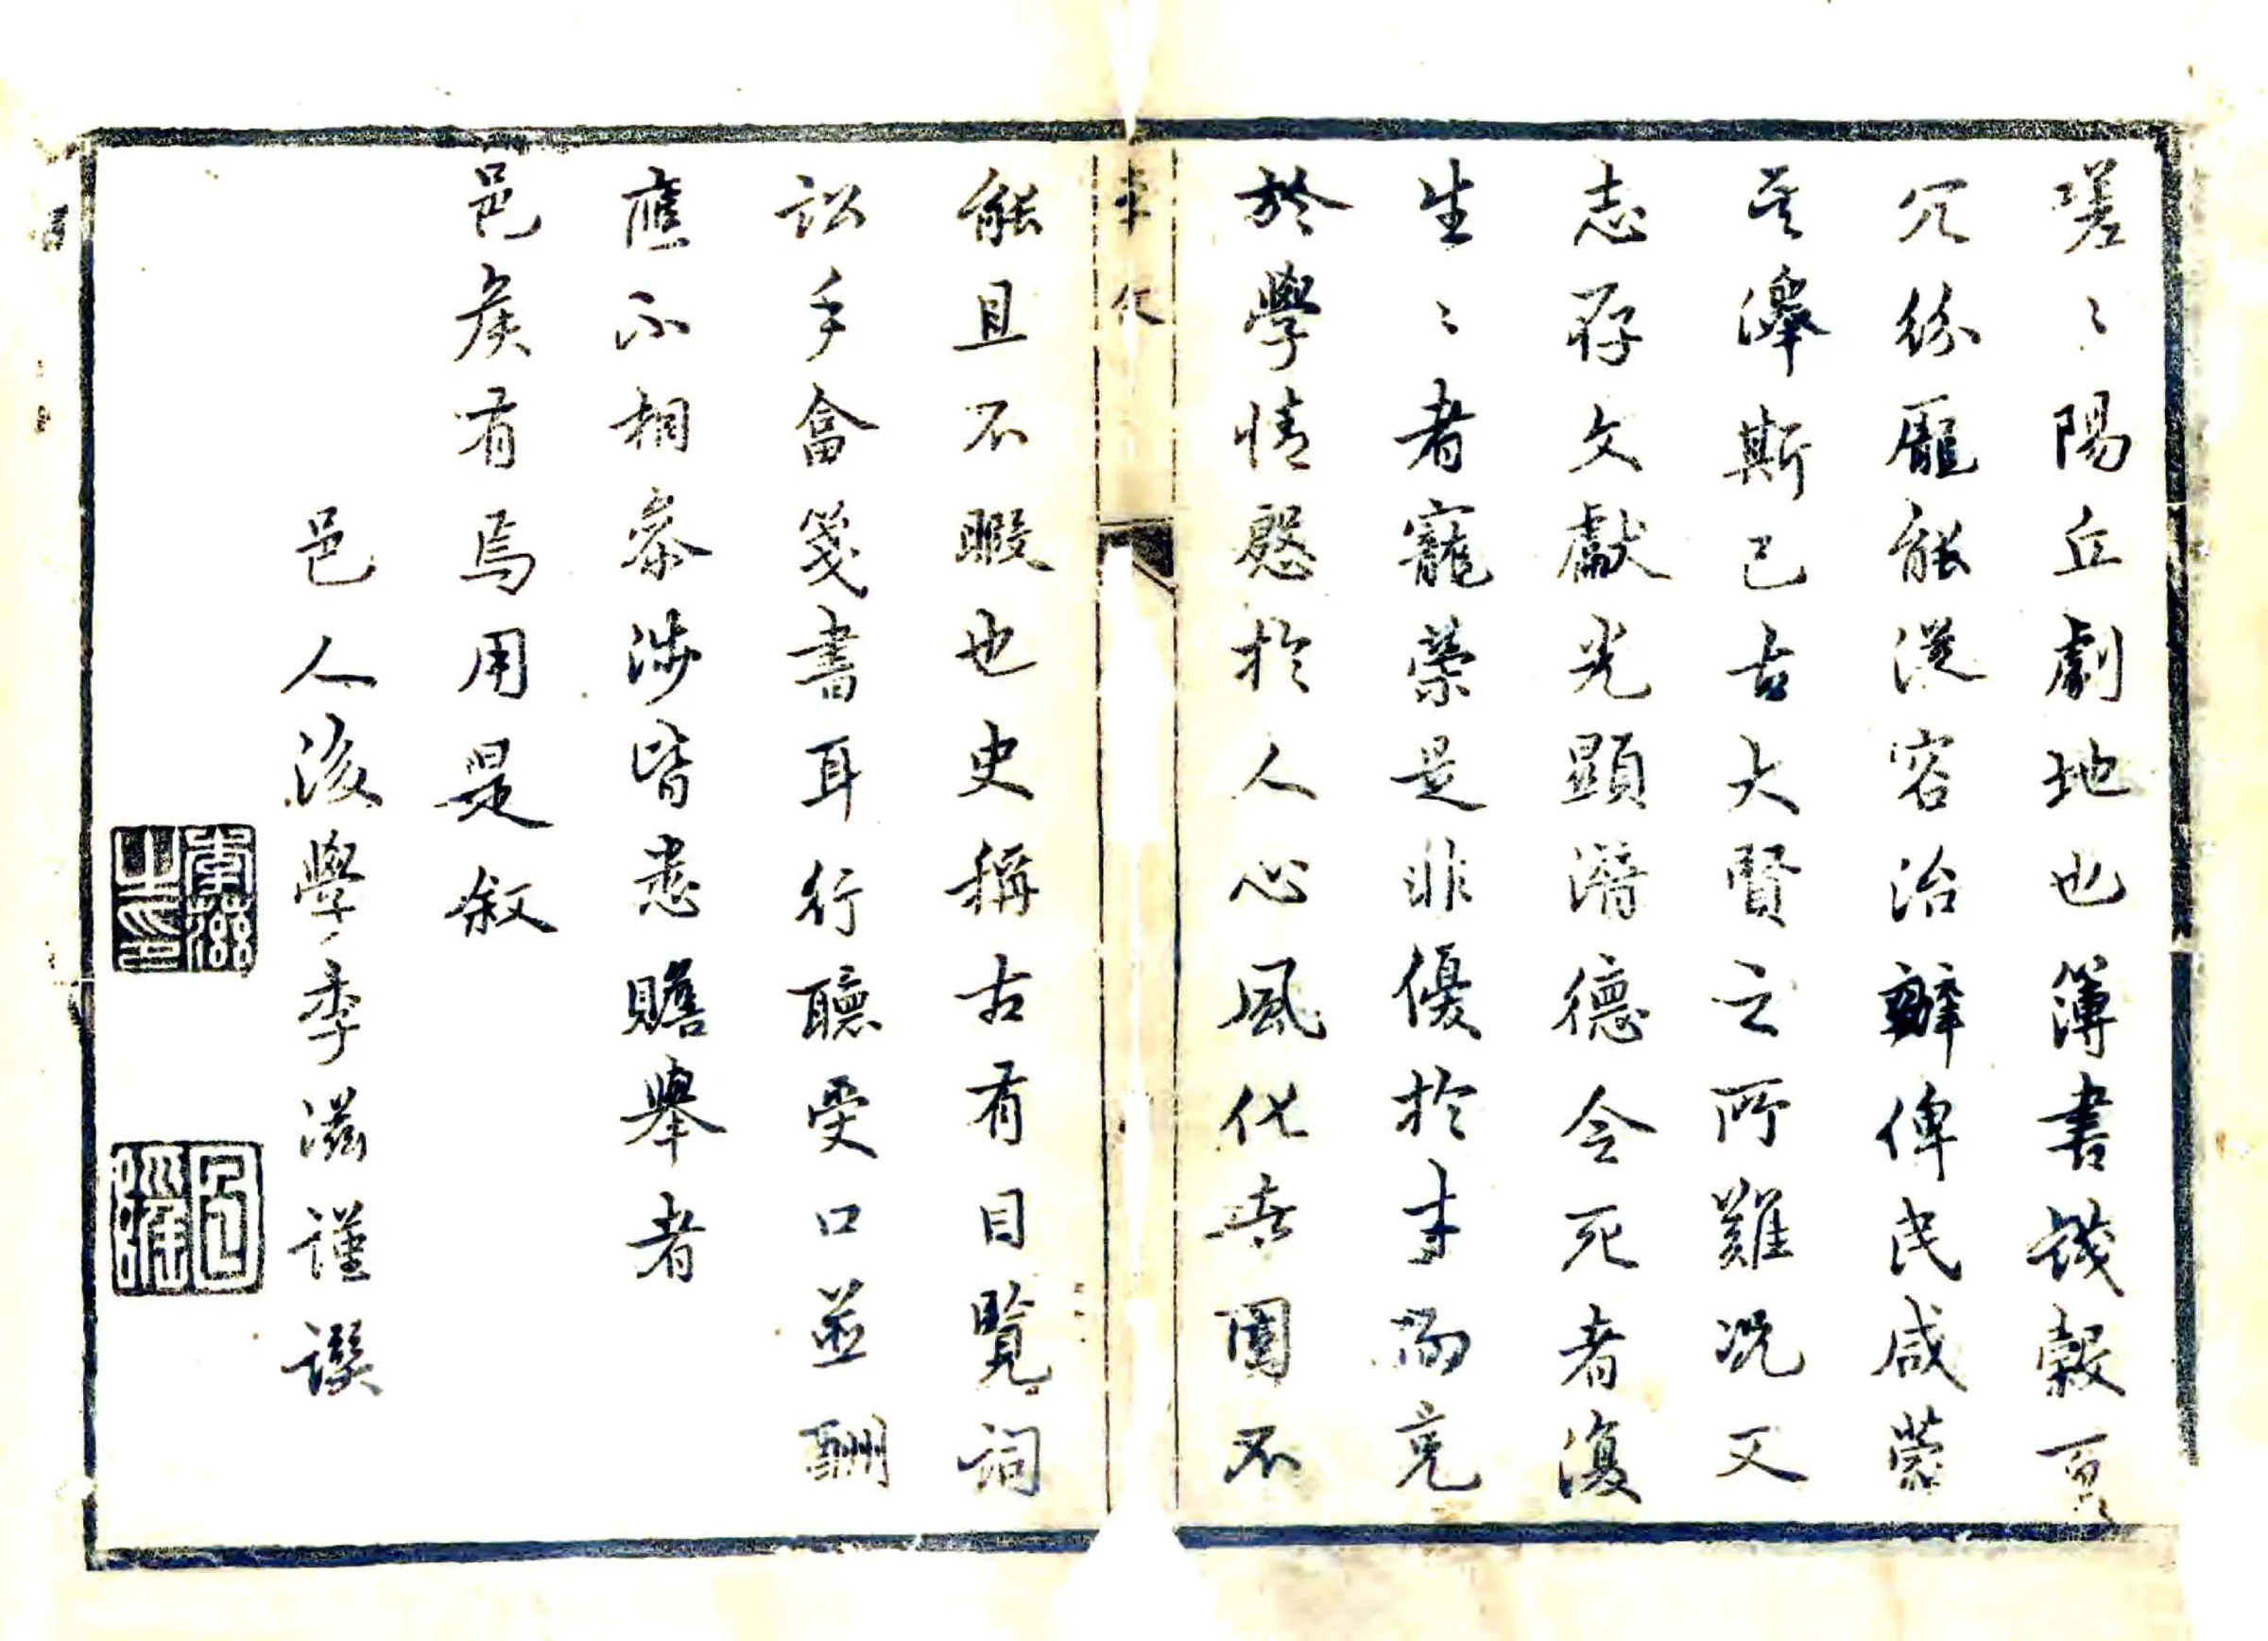 嗟〻陽丘劇地也簿書錢穀百冗
冗紛龐能從容治辦俾民咸蒙
其澤斯已古大賢之所難況又
志存文獻光顯潛德令死者復
生〻者寵榮是非優於才而充
於學情慇於人心風化去圖不
能且不暇也史稱古有目覽詞
訟手畣箋書耳行聽受口並酬
應不相參涉皆悉贍舉者
邑矦有焉用是叙
邑人後學李滋謹譔
李滋之印